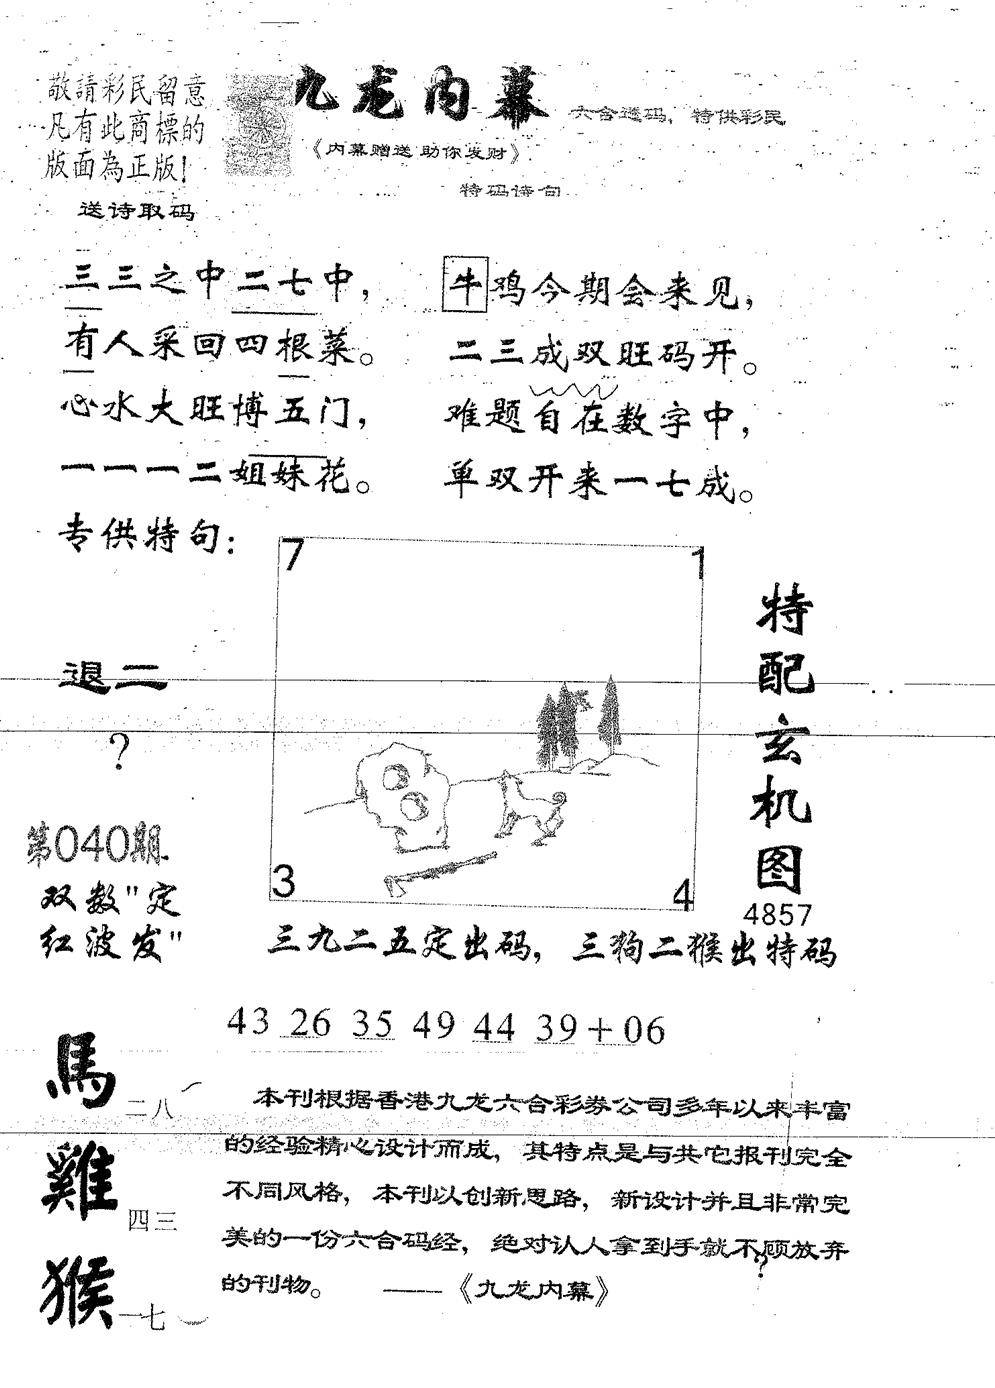 敬請彩民留意
凡有此商標的
版面為正版!
送诗取码
九龙内幕
六合透码，特供彩民
《内幕赠送 助你发财》
特码诗句
三三之中二七中，
有人采回四根菜。
心水大旺博五门，
一一一二姐妹花。
牛鸡今期会来见，
二三成双旺码开。
难题自在数字中，
单双开来一七成。
专供特句：
退二
?
第040期
双数"定
红波发"
7
1
3
4
特配玄机图
4857
三九二五定出码，三狗二猴出特码
43 26 35 49 44 39+06
馬
二八
雞
四三
猴
一七
本刊根据香港九龙六合彩券公司多年以来丰富
的经验精心设计而成，其特点是与其它报刊完全
不同风格，本刊以创新思路，新设计并且非常完
美的一份六合码经，绝对认人拿到手就不顾放弃
?
的刊物。 ——《九龙内幕》